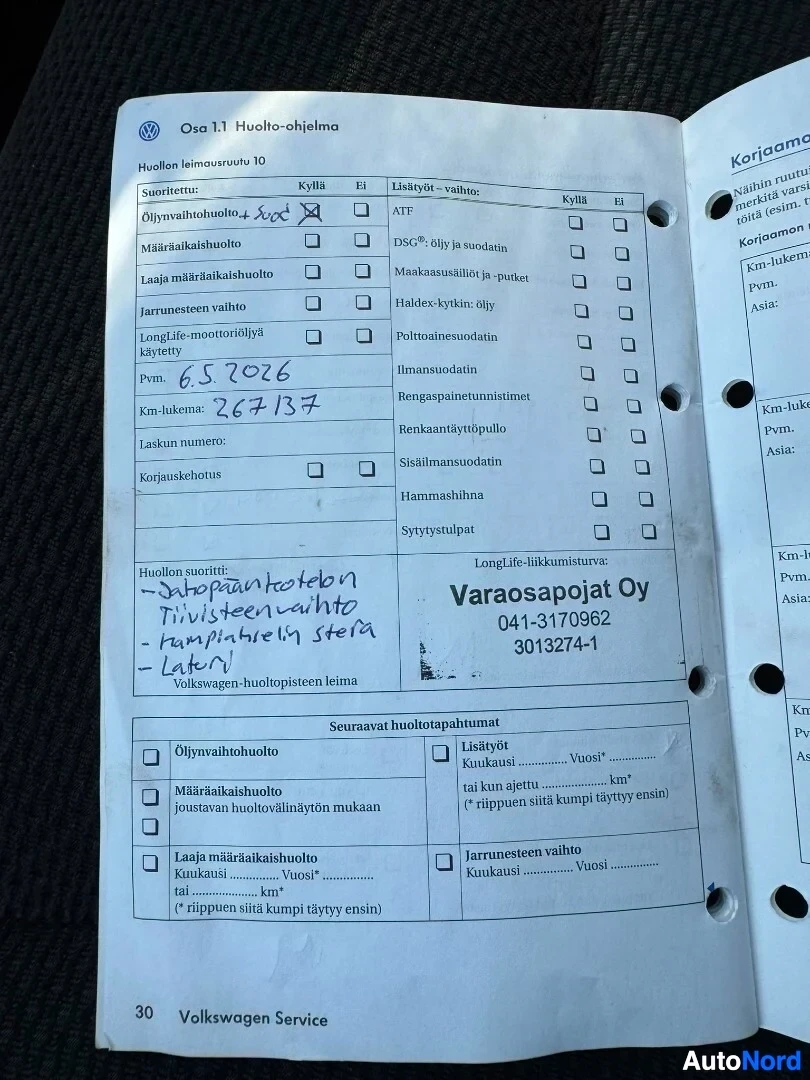 Osa 1.1 Huolto-ohjelma
Huollon leimausruutu 10
Suoritettu: Kyllä Ei
Öljynvaihtohuolto + Suod
Määräaikaishuolto
Laaja määräaikaishuolto
Jarrunesteen vaihto
LongLife-moottoriöljyä
käytetty
Pvm. 6.5.2026
Km-lukema: 267137
Laskun numero:
Korjauskehotus
Lisätyöt – vaihto: Kyllä Ei
ATF
DSG®: öljy ja suodatin
Maakaasusäiliöt ja -putket
Haldex-kytkin: öljy
Polttoainesuodatin
Ilmansuodatin
Rengaspainetunnistimet
Renkaantäyttöpullo
Sisäilmansuodatin
Hammashihna
Sytytystulpat
Huollon suoritti:
- Jakopään kotelon
Tiivisteenvaihto
- Kampiakselin stefa
- Laturi
Volkswagen-huoltopisteen leima
LongLife-liikkumisturva:
Varaosapojat Oy
041-3170962
3013274-1
Seuraavat huoltotapahtumat
Öljynvaihtohuolto
Määräaikaishuolto
joustavan huoltovälinäytön mukaan
Laaja määräaikaishuolto
Kuukausi .............. Vuosi* ...............
tai .................... km*
(* riippuen siitä kumpi täytyy ensin)
Lisätyöt
Kuukausi .............. Vuosi* ..............
tai kun ajettu .................... km*
(* riippuen siitä kumpi täyttyy ensin)
Jarrunesteen vaihto
Kuukausi .............. Vuosi ..............
30 Volkswagen Service
Korjaamo
Näihin ruutu
merkitä varsi
töitä (esim. t
Korjaamon
Km-lukema
Pvm.
Asia:
Km-luke
Pvm.
Asia:
Km-l
Pvm.
Asia:
Km
Pv
As
AutoNord